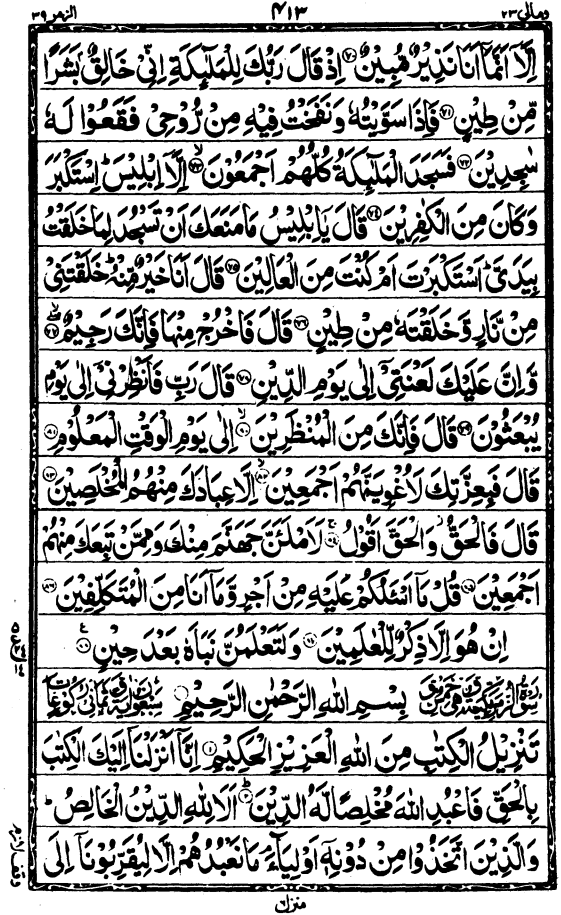 ومالی ۲۳ ۴۱۳ الزمر ۳۹
اِلَّاۤ اَنَّمَاۤ اَنَا نَذِیْرٌ مُّبِیْنٌ ﴿۷۰﴾ اِذْ قَالَ رَبُّكَ لِلْمَلٰٓئِكَةِ اِنِّیْ خَالِقٌۢ بَشَرًا
مِّنْ طِیْنٍ ﴿۷۱﴾ فَاِذَا سَوَّیْتُهٗ وَنَفَخْتُ فِیْهِ مِنْ رُّوْحِیْ فَقَعُوْا لَهٗ
سٰجِدِیْنَ ﴿۷۲﴾ فَسَجَدَ الْمَلٰٓئِكَةُ كُلُّهُمْ اَجْمَعُوْنَ ﴿۷۳﴾ۙ اِلَّاۤ اِبْلِیْسَ ؕ اِسْتَكْبَرَ
وَكَانَ مِنَ الْكٰفِرِیْنَ ﴿۷۴﴾ قَالَ یٰۤاِبْلِیْسُ مَا مَنَعَكَ اَنْ تَسْجُدَ لِمَا خَلَقْتُ
بِیَدَیَّ ؕ اَسْتَكْبَرْتَ اَمْ كُنْتَ مِنَ الْعَالِیْنَ ﴿۷۵﴾ قَالَ اَنَا خَیْرٌ مِّنْهُ ؕ خَلَقْتَنِیْ
مِنْ نَّارٍ وَّخَلَقْتَهٗ مِنْ طِیْنٍ ﴿۷۶﴾ قَالَ فَاخْرُجْ مِنْهَا فَاِنَّكَ رَجِیْمٌ ﴿۷۷﴾ۚۖ
وَّاِنَّ عَلَیْكَ لَعْنَتِیْۤ اِلٰی یَوْمِ الدِّیْنِ ﴿۷۸﴾ قَالَ رَبِّ فَاَنْظِرْنِیْۤ اِلٰی یَوْمِ
یُبْعَثُوْنَ ﴿۷۹﴾ قَالَ فَاِنَّكَ مِنَ الْمُنْظَرِیْنَ ﴿۸۰﴾ۙ اِلٰی یَوْمِ الْوَقْتِ الْمَعْلُوْمِ ﴿۸۱﴾
قَالَ فَبِعِزَّتِكَ لَاُغْوِیَنَّهُمْ اَجْمَعِیْنَ ﴿۸۲﴾ۙ اِلَّا عِبَادَكَ مِنْهُمُ الْمُخْلَصِیْنَ ﴿۸۳﴾
قَالَ فَالْحَقُّ ؗ وَالْحَقَّ اَقُوْلُ ﴿۸۴﴾ۚ لَاَمْلَئَنَّ جَهَنَّمَ مِنْكَ وَمِمَّنْ تَبِعَكَ مِنْهُمْ
اَجْمَعِیْنَ ﴿۸۵﴾ قُلْ مَاۤ اَسْئَلُكُمْ عَلَیْهِ مِنْ اَجْرٍ وَّمَاۤ اَنَا مِنَ الْمُتَكَلِّفِیْنَ ﴿۸۶﴾
اِنْ هُوَ اِلَّا ذِكْرٌ لِّلْعٰلَمِیْنَ ﴿۸۷﴾ وَلَتَعْلَمُنَّ نَبَاَهٗ بَعْدَ حِیْنٍ ﴿۸۸﴾ ع
بِسْمِ اللهِ الرَّحْمٰنِ الرَّحِیْمِ
تَنْزِیْلُ الْكِتٰبِ مِنَ اللهِ الْعَزِیْزِ الْحَكِیْمِ ﴿۱﴾ اِنَّاۤ اَنْزَلْنَاۤ اِلَیْكَ الْكِتٰبَ
بِالْحَقِّ فَاعْبُدِ اللهَ مُخْلِصًا لَّهُ الدِّیْنَ ﴿۲﴾ؕ اَلَا لِلّٰهِ الدِّیْنُ الْخَالِصُ ؕ
وَالَّذِیْنَ اتَّخَذُوْا مِنْ دُوْنِهٖۤ اَوْلِیَآءَ ۘ مَا نَعْبُدُهُمْ اِلَّا لِیُقَرِّبُوْنَاۤ اِلَی
منزل